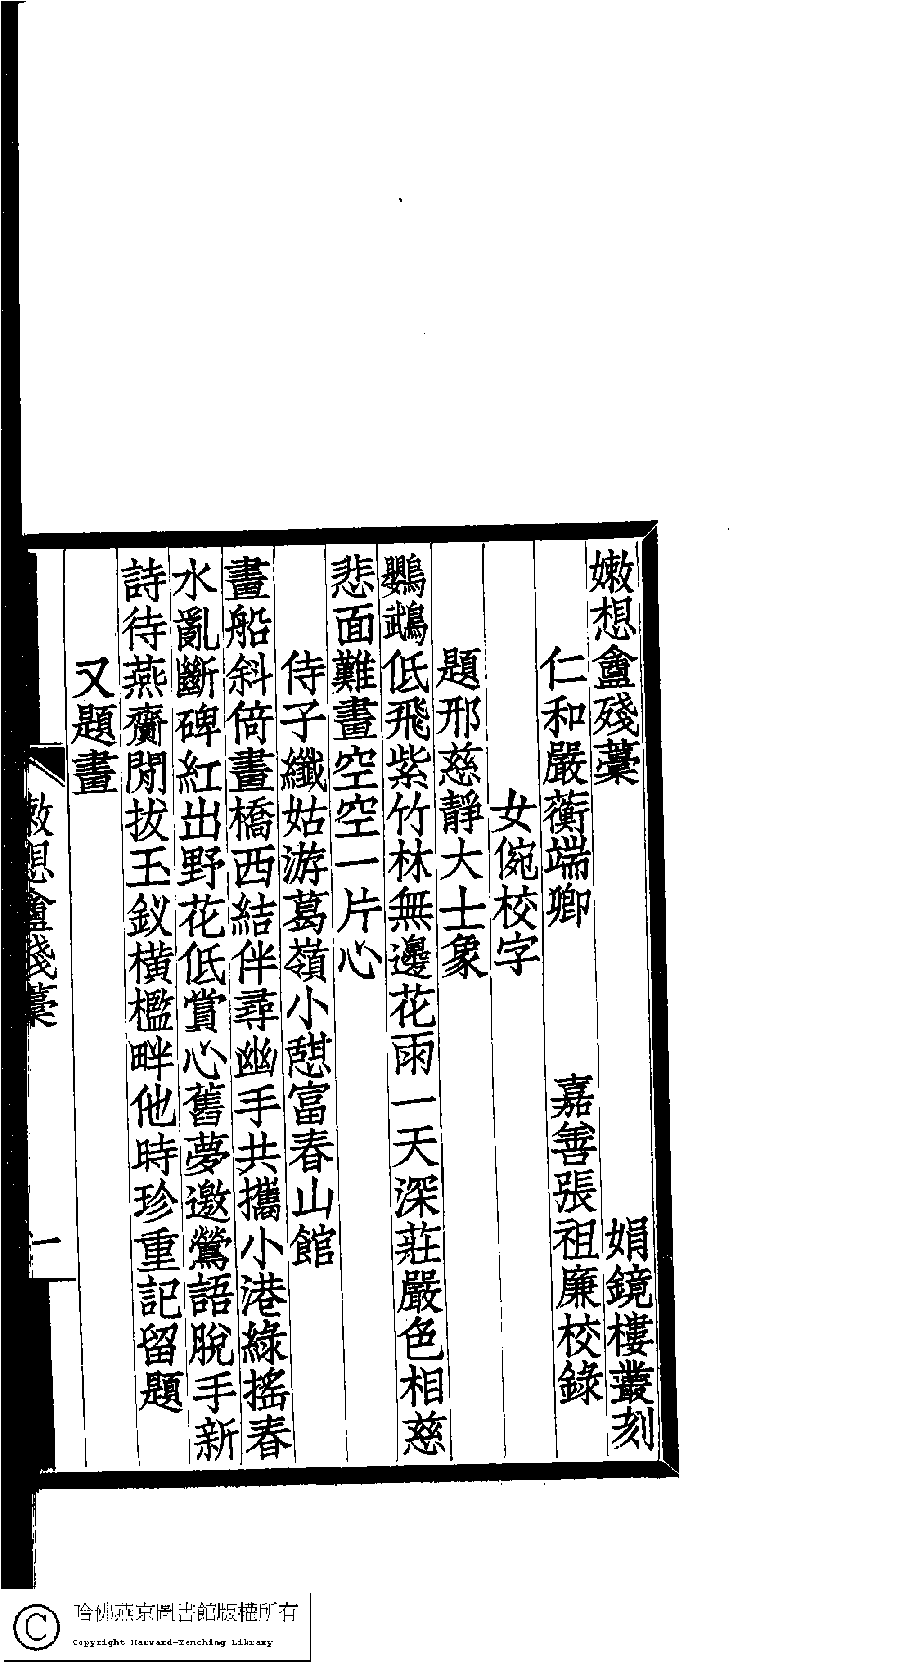 嫩想盦殘藁 娟鏡樓叢刻
仁和嚴蘅端卿 嘉善張祖廉校錄
女㑮校字
題邢慈靜大士象
鸚鵡低飛紫竹林無邊花雨一天深莊嚴色相慈
悲面難畫空空一片心
侍子纖姑游葛嶺小憩富春山館
畫船斜倚畫橋西結伴尋幽手共攜小港綠搖春
水亂斷碑紅出野花低賞心舊夢邀鶯語脫手新
詩待燕齎閒拔玉釵橫檻畔他時珍重記留題
又題畫
嫩想盦殘藁
一
哈佛燕京圖書館版權所有
Copyright Harvard-Yenching Library